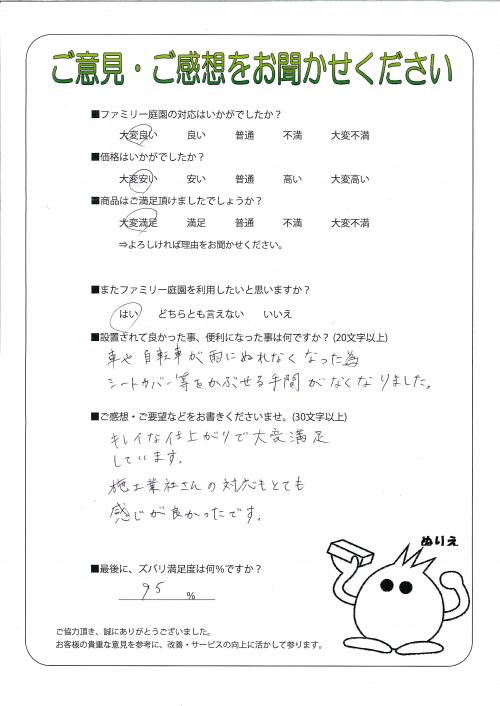 ご意見・ご感想をお聞かせください
■ファミリー庭園の対応はいかがでしたか？
大変良い 良い 普通 不満 大変不満
■価格はいかがでしたか？
大変安い 安い 普通 高い 大変高い
■商品はご満足頂けましたでしょうか？
大変満足 満足 普通 不満 大変不満
⇒よろしければ理由をお聞かせください。
■またファミリー庭園を利用したいと思いますか？
はい どちらとも言えない いいえ
■設置されて良かった事、便利になった事は何ですか？(20文字以上)
車や自転車が雨にぬれなくなった為
シートカバー等をかぶせる手間がなくなりました。
■ご感想・ご要望などをお書きくださいませ。(30文字以上)
キレイな仕上がりで大変満足
しています。
施工業社さんの対応もとても
感じが良かったです。
ぬりえ
■最後に、ズバリ満足度は何％ですか？
95 %
ご協力頂き、誠にありがとうございました。
お客様の貴重な意見を参考に、改善・サービスの向上に活かして参ります。